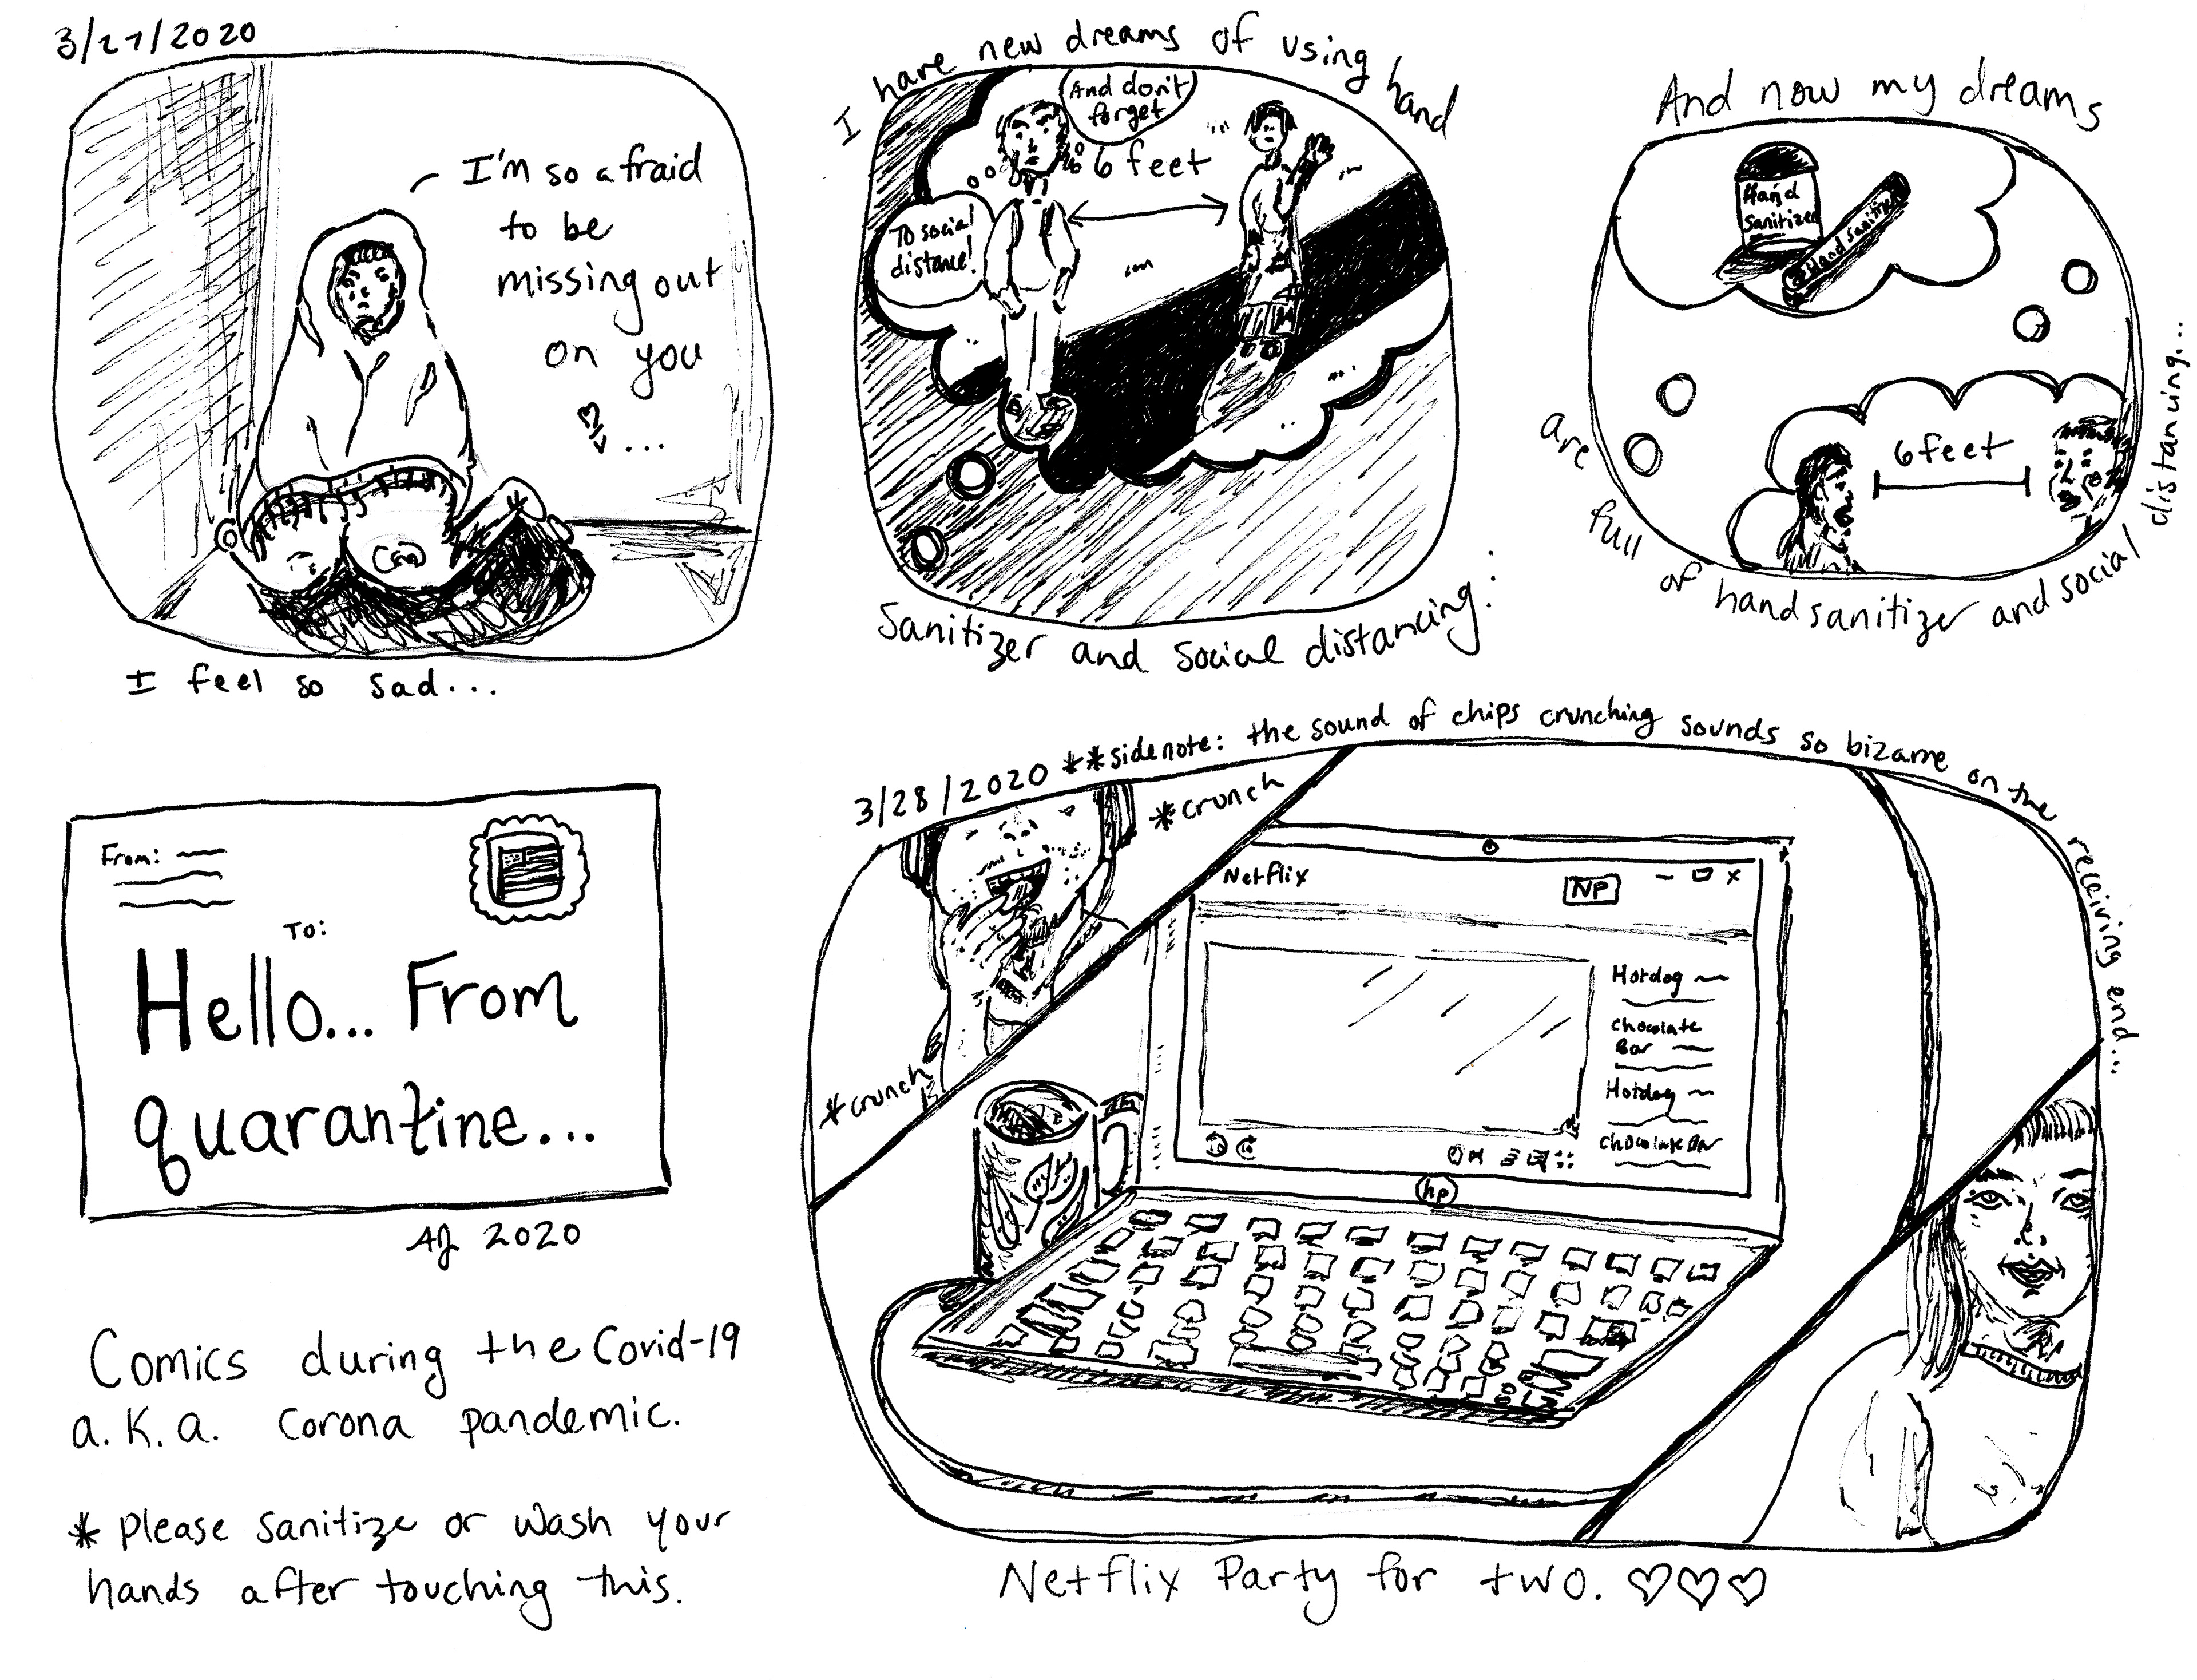 3/27/2020
I'm so afraid
to be
missing out
on you
...
I feel so sad...
I have new dreams of using hand
And don't
forget
6 feet
To social
distance!
Sanitizer and social distancing...
And now my dreams
Hand
Sanitizer
Hand sanitizer
6 feet
are full of hand sanitizer and social distancing...
From:
To:
Hello... From
quarantine...
AJ 2020
Comics during the Covid-19
a.k.a. corona pandemic.
* please sanitize or wash your
hands after touching this.
3/28/2020 **sidenote: the sound of chips crunching sounds so bizarre on the receiving end...
*crunch
*crunch
Netflix
NP
Hotdog
Chocolate
Bar
Hotdog
Chocolate Bar
hp
Netflix Party for two. ♡♡♡